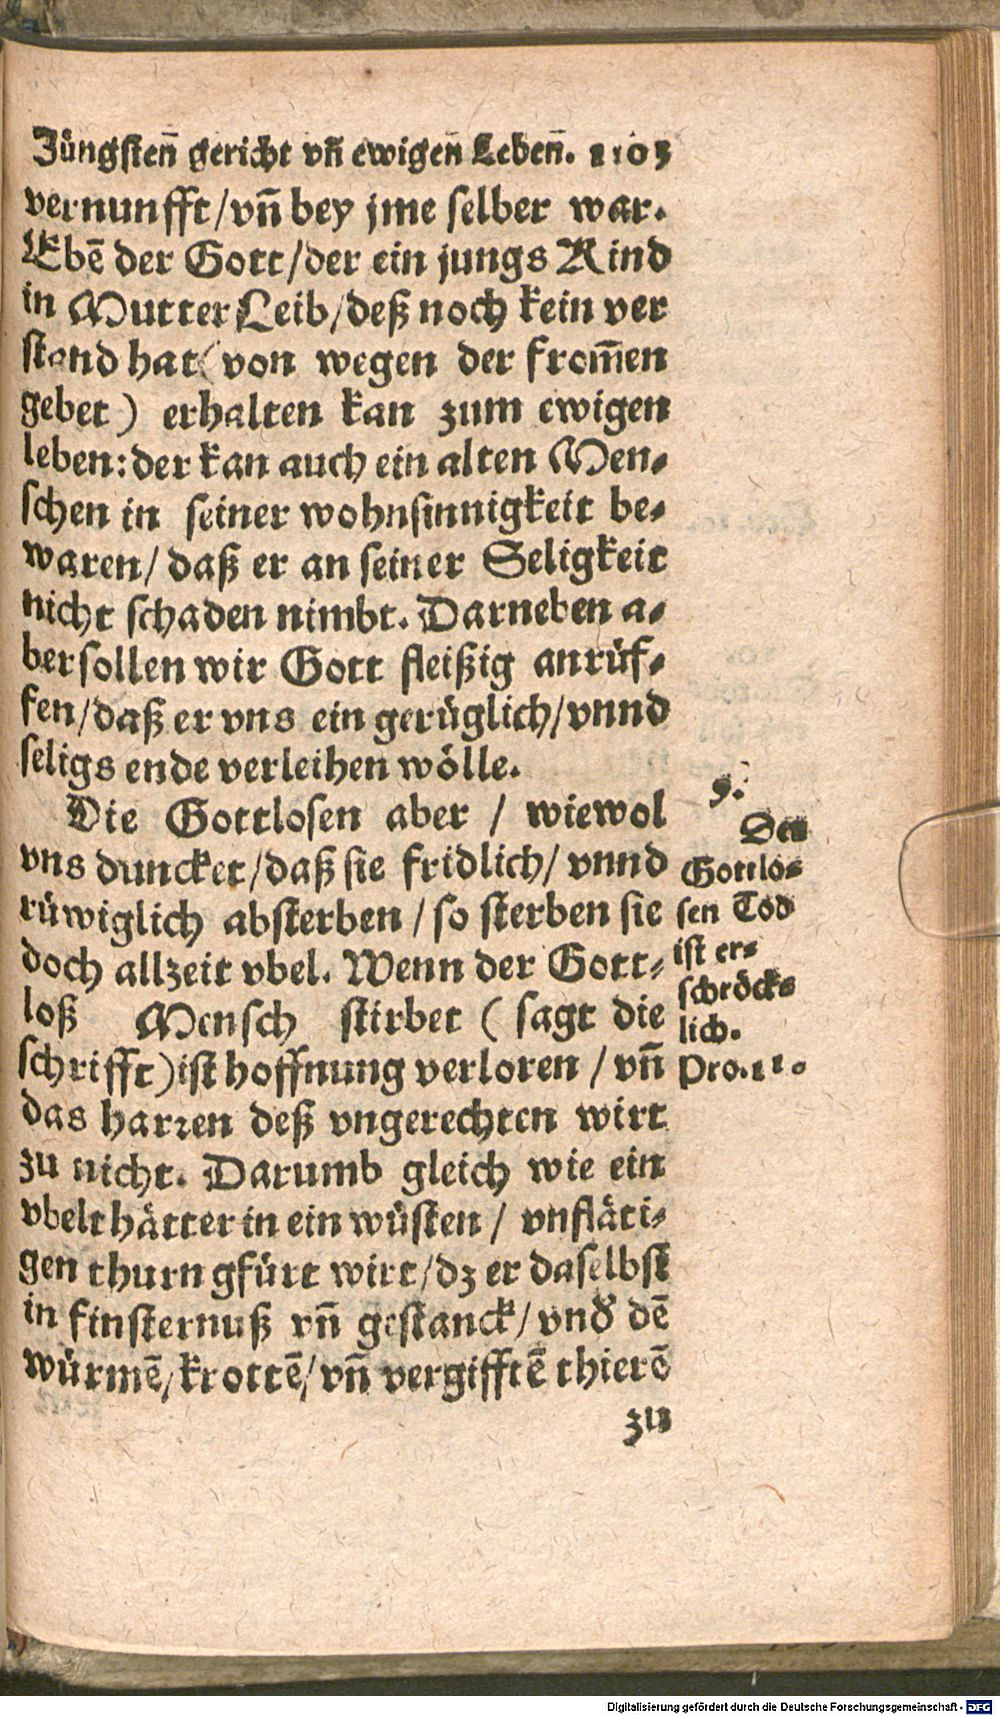 Jüngsten̄ gericht vn̄ ewigen̄ Leben̄. 1103
vernunfft/vn̄ bey jme selber war.
Ebē der Gott/der ein jungs Kind
in Mutter Leib/deß noch kein ver
stand hat (von wegen der from̄en
gebet) erhalten kan zum ewigen
leben: der kan auch ein alten Men-
schen in seiner wohnsinnigkeit be-
waren/ daß er an seiner Seligkeit
nicht schaden nimbt. Darneben a-
ber sollen wir Gott fleißig anrüf-
fen/daß er vns ein gerüglich/vnnd
seligs ende verleihen wölle.
Die Gottlosen aber / wiewol
vns duncket/daß sie fridlich/ vnnd
rüwiglich absterben / so sterben sie
doch allzeit vbel. Wenn der Gott-
loß Mensch stirbet ( sagt die
schrifft) ist hoffnung verloren / vn̄
das harꝛen deß vngerechten wirt
zu nicht. Darumb gleich wie ein
vbelthätter in ein wüsten / vnfläti-
gen thurn gfürt wirt/dz er daselbst
in finsternuß vn̄ gestanck/ vnd̛ dē
würmē/krottē/vn̄ vergifftē thierē
zu
9.
Der
Gottlo-
sen Tod
ist er-
schröck-
lich.
Pro.11.
Digitalisierung gefördert durch die Deutsche Forschungsgemeinschaft - DFG